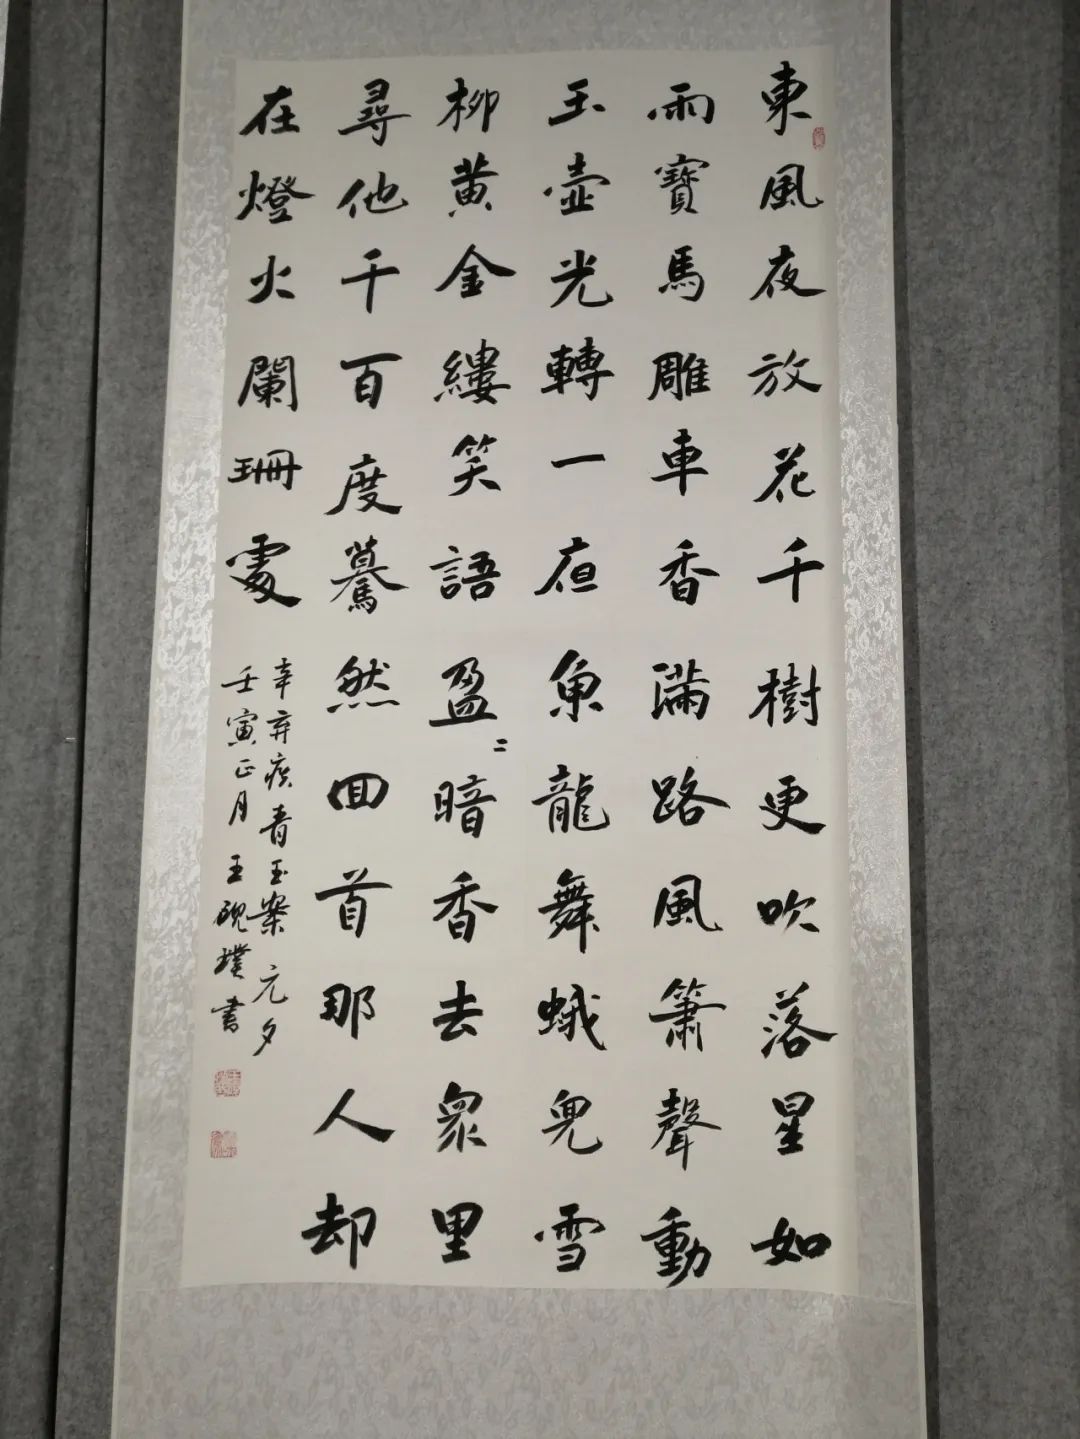 東風夜放花千樹更吹落星如
雨寶馬雕車香滿路風簫聲動
玉壺光轉一夜魚龍舞蛾兒雪
柳黃金縷笑語盈二暗香去眾里
尋他千百度驀然回首那人却
在燈火闌珊處
辛弃疾青玉案 元夕
壬寅正月王璞書